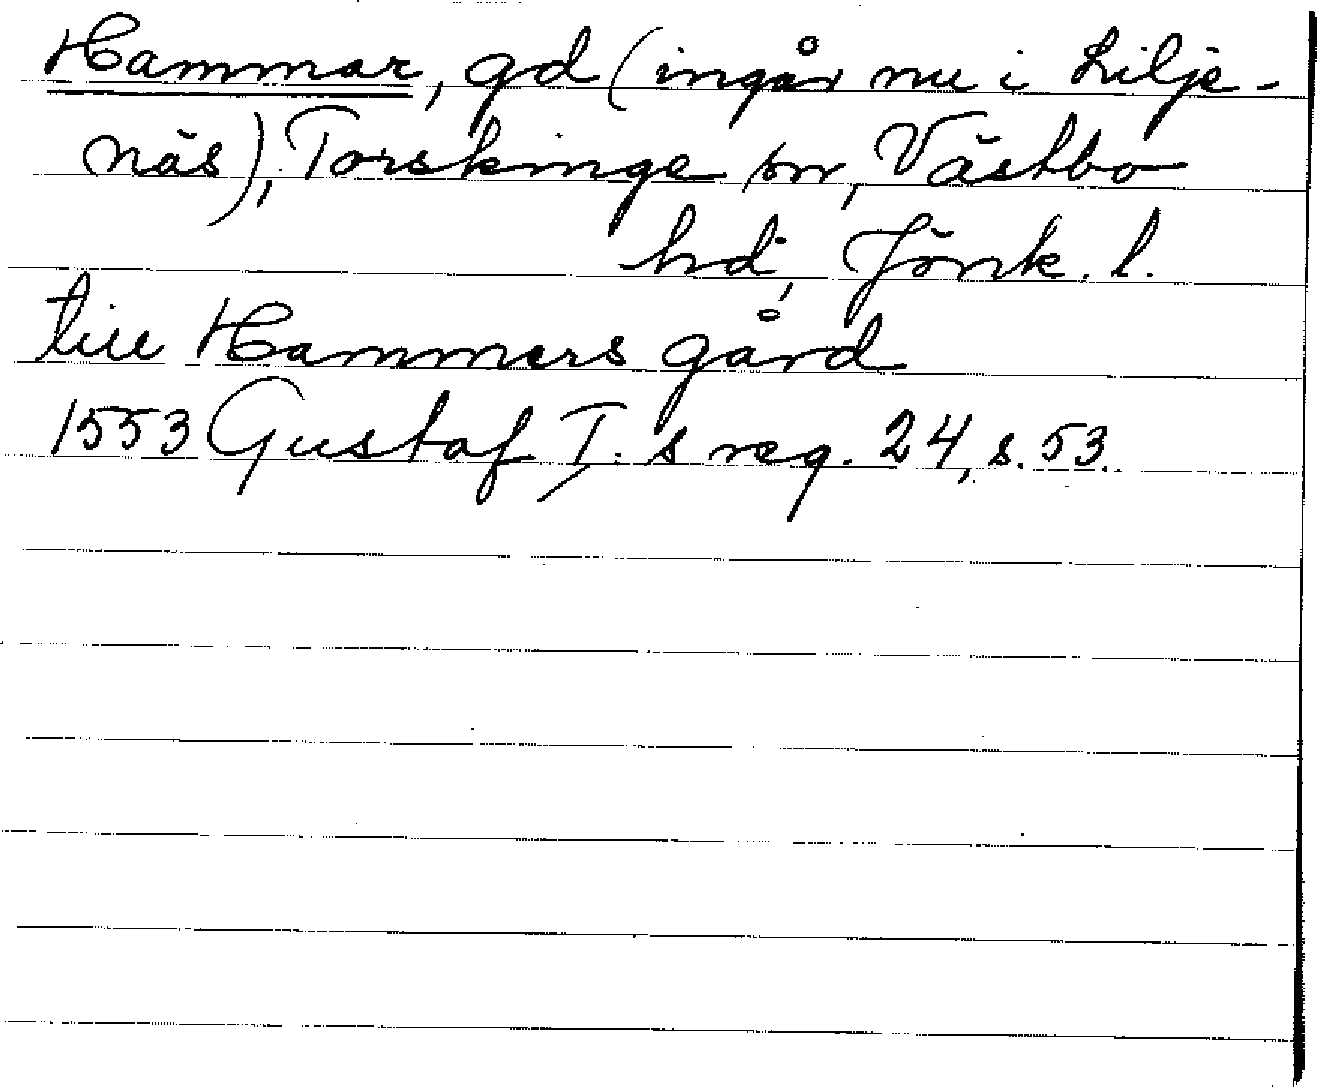 Hammar, gd (ingår nu i Lilje-
näs), Torskinge sn, Västbo
hd, Jönk. l.
till Hammers gård
1553 Gustaf I:s reg. 24, s. 53.